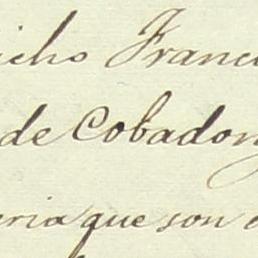 icho Franci
de Cobadon
eria que son